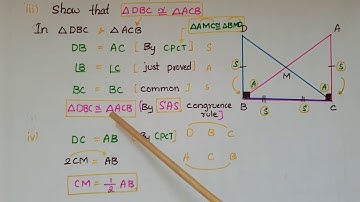 iii) Show that △DBC ≅ △ACB
In △DBC & △ACB
△AMC ≅ △BMD
DB = AC [By CPCT] S
∠B = ∠C [just proved] A
BC = BC [common] S
△DBC ≅ △ACB [By SAS congruence rule]
iv) DC = AB [By CPCT] D B C
2CM = AB A C B
CM = 1/2 AB
D A
S M S
A A
B S S C